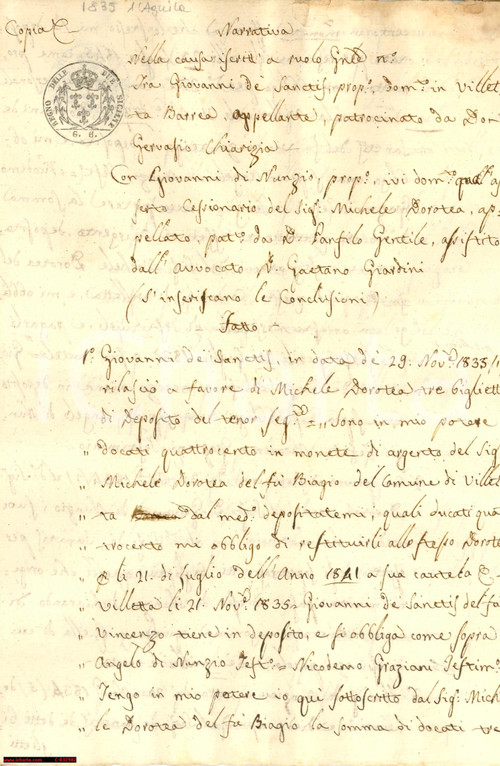 1835 l'Aquila
Copia
Narrativa
Nella causa iscritt' a ruolo Gnle n.º
Tra Giovanni de Sanctis, prop.º dom.º in Villet
ta Barrea appellante, patrocinato da Don
Gervasio Chiarizia
Con Giovanni di Nunzio, prop.º, ivi dom.º qual as
serto Cessionario del Sig.r Michele Dorotea, ap
pellato, pat.º da D. Panfilo Gentile, assistito
dall' avvocato D. Gaetano Giardini
(S'inseriscano le Conclusioni)
Fatto
1.º Giovanni de Sanctis, in data de 29. Nov.e 1835
rilasciò a favore di Michele Dorotea tre bigliett
di Deposito del tenor seg.te = „ Sono in mio potere
„ docati quattrocento in monete di argento del Sig
„ Michele Dorotea del fù Biagio del Comune di Villet
„ ta dal med.º depositatemi, quali ducati qua
„ trocento mi obbligo di restituirli allo stesso Dorote
„ li 21. di Luglio dell' Anno 1841 a sua cautela
„ Villetta li 21. Nov.e 1835 = Giovanni de Sanctis del fù
„ Vincenzo tiene in deposito, e si obbliga come sopra
„ Angelo di Nunzio Test.e = Nicodemo Graziani Testim.
„ Tengo in mio potere io quì sottoscritto dal Sig.r Mich
„ le Dorotea del fù Biagio la somma di docati tre
REGNO DELLE DUE SICILIE
G. 6.